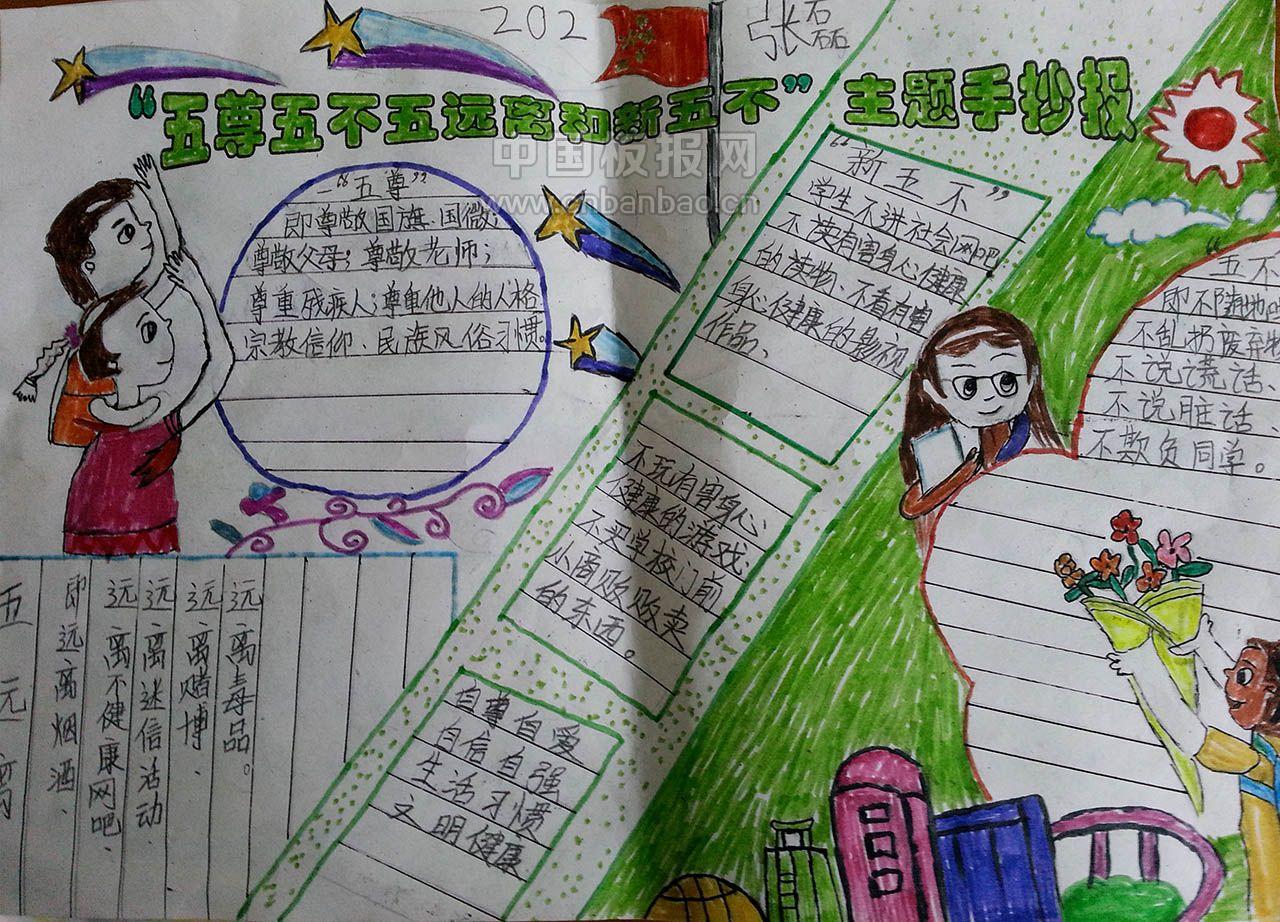 202
张磊
“五尊五不五远离和新五不”主题手抄报
中国板报网
www.cnbanbao.cn
“五尊”
即尊敬国旗、国徽;
尊敬父母;尊敬老师;
尊重残疾人;尊重他人的人格
宗教信仰、民族风俗习惯。
“新五不”
学生不进社会网吧
不读有害身心健康
的读物、不看有害
身心健康的影视
作品、
不玩有害身心
健康的游戏、
不买学校门前
小商贩贩卖
的东西。
自尊自爱
自信自强
生活习惯
文明健康
“五不
即不随地
不乱扔废弃物
不说谎话、
不说脏话、
不欺负同学。
五元离
即远离烟酒、
远离不健康网吧、
远离迷信活动
远离赌博、
远离毒品。